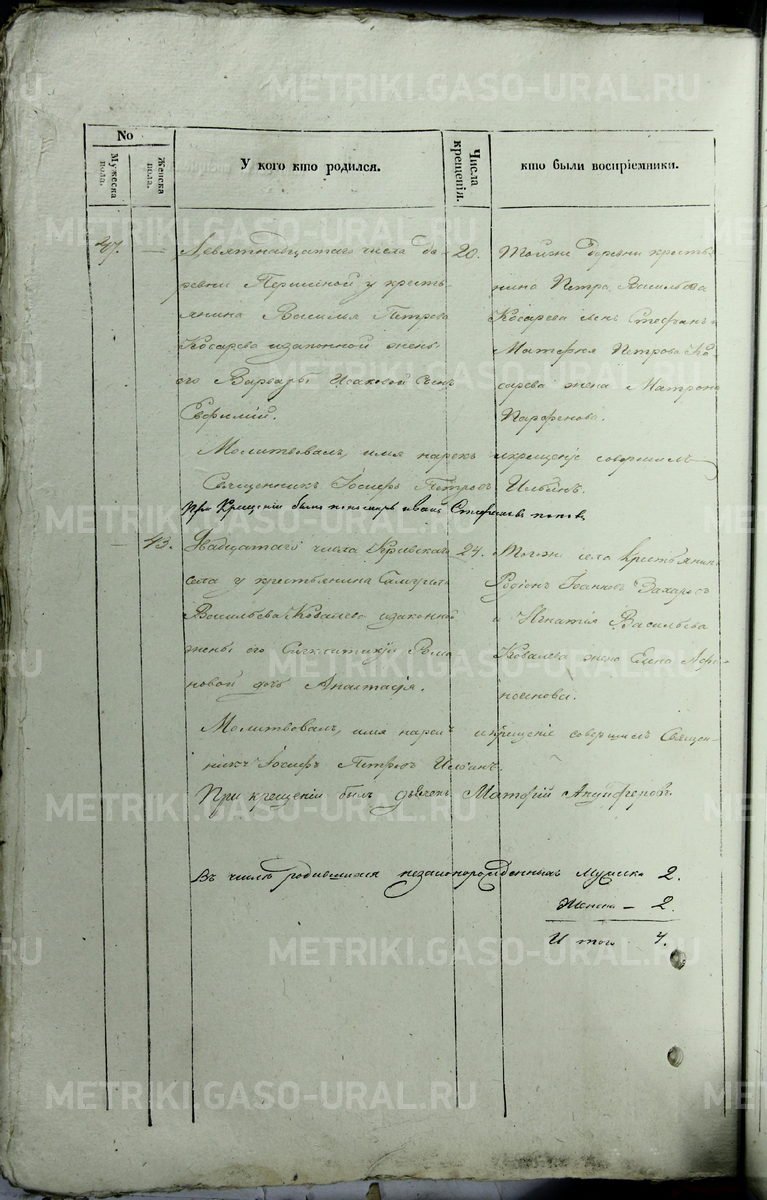 METRIKI.GASO-URAL.RU
No
Мужеска пола.
Женска пола.
У кого кто родился.
Числа крещенія.
кто были воспріемники.
47. —
Девятнадцатаго числа де-
ревни Першиной у кресть-
янина Василья Петрова
Косарева и законной жены
его Варвары Исаковой сынъ
Евфимій.
20.
Тойже деревни крестья-
нина Петра Васильева
Косарева сынъ Стефанъ и
Матфея Петрова Ко-
сарева жена Матрона
Парфенова.
Молитвовалъ, имя нарекъ и крещеніе совершилъ
Священникъ Іосифъ Петровъ Ильинъ.
При Крещеніи былъ пономарь Иванъ Стефановъ Поповъ.
— 43.
Двадцатаго числа
села у крестьянина Самуила
Васильева Ковалева и законной
жены его Синклитикіи Рома-
новой дочь Анастасія.
24.
Тогож села Крестьянинъ
Родіонъ Іоанновъ Захаровъ
и Игнатія Васильева
Ковалева жена Елена
Молитвовалъ, имя нарекъ и крещеніе совершилъ Священ-
никъ Іосифъ Петровъ Ильинъ.
При крещеніи былъ дьячекъ Матфій Ануфріевъ.
Въ числѣ родившихся незаконорожденныхъ Мужска 2.
Женска — 2.
Итого 4.